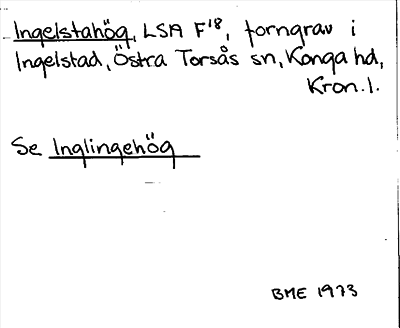 Ingelstahög, LSA F¹⁸, forngrav i
Ingelstad, Östra Torsås sn, Konga hd,
Kron. l.
Se Inglingehög
BME 1973